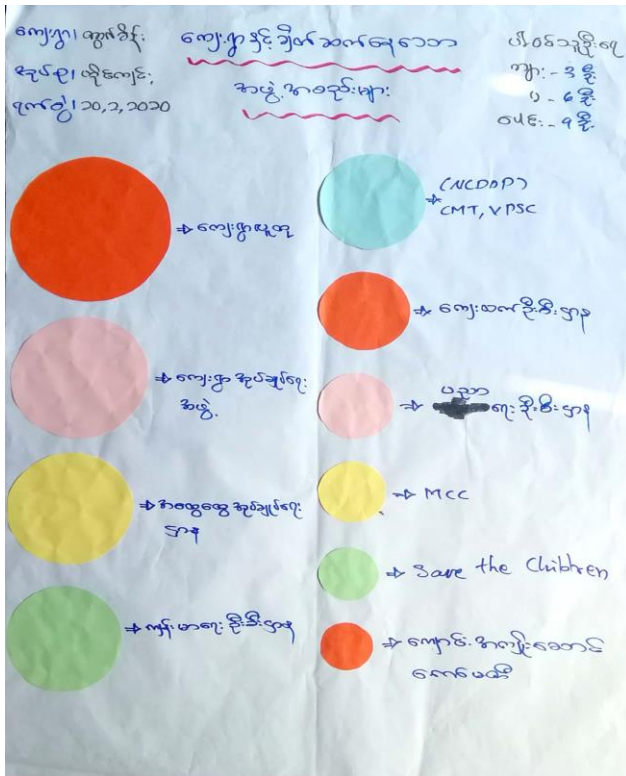 ကျေးရွာ၊ ကွက်စိန်း
အုပ်စု၊
ရက်စွဲ၊ ၁၀,၃,၂၀၂၀
ကျေးရွာနှင့်ချိတ်ဆက်နေသော
အဖွဲ့အစည်းများ
ပါဝင်သူဦးရေ
ကျား - ၃ ဦး
မ - ၆ ဦး
ပေါင်း - ၉ ဦး
⇒ ကျေးရွာလူထု
⇒ ကျေးရွာ အုပ်ချုပ်ရေး
အဖွဲ့
⇒ အထွေထွေအုပ်ချုပ်ရေး
ဌာန
⇒ ကျန်းမာရေးဦးစီးဌာန
(NCDDP)
⇒ CMT, VPSC
⇒ ကျေးလက်ဦးစီးဌာန
ပညာ
⇒ ရေးဦးစီးဌာန
⇒ MCC
⇒ Save the Children
⇒ ကျောင်းအကျိုးဆောင်
ကော်မတီ